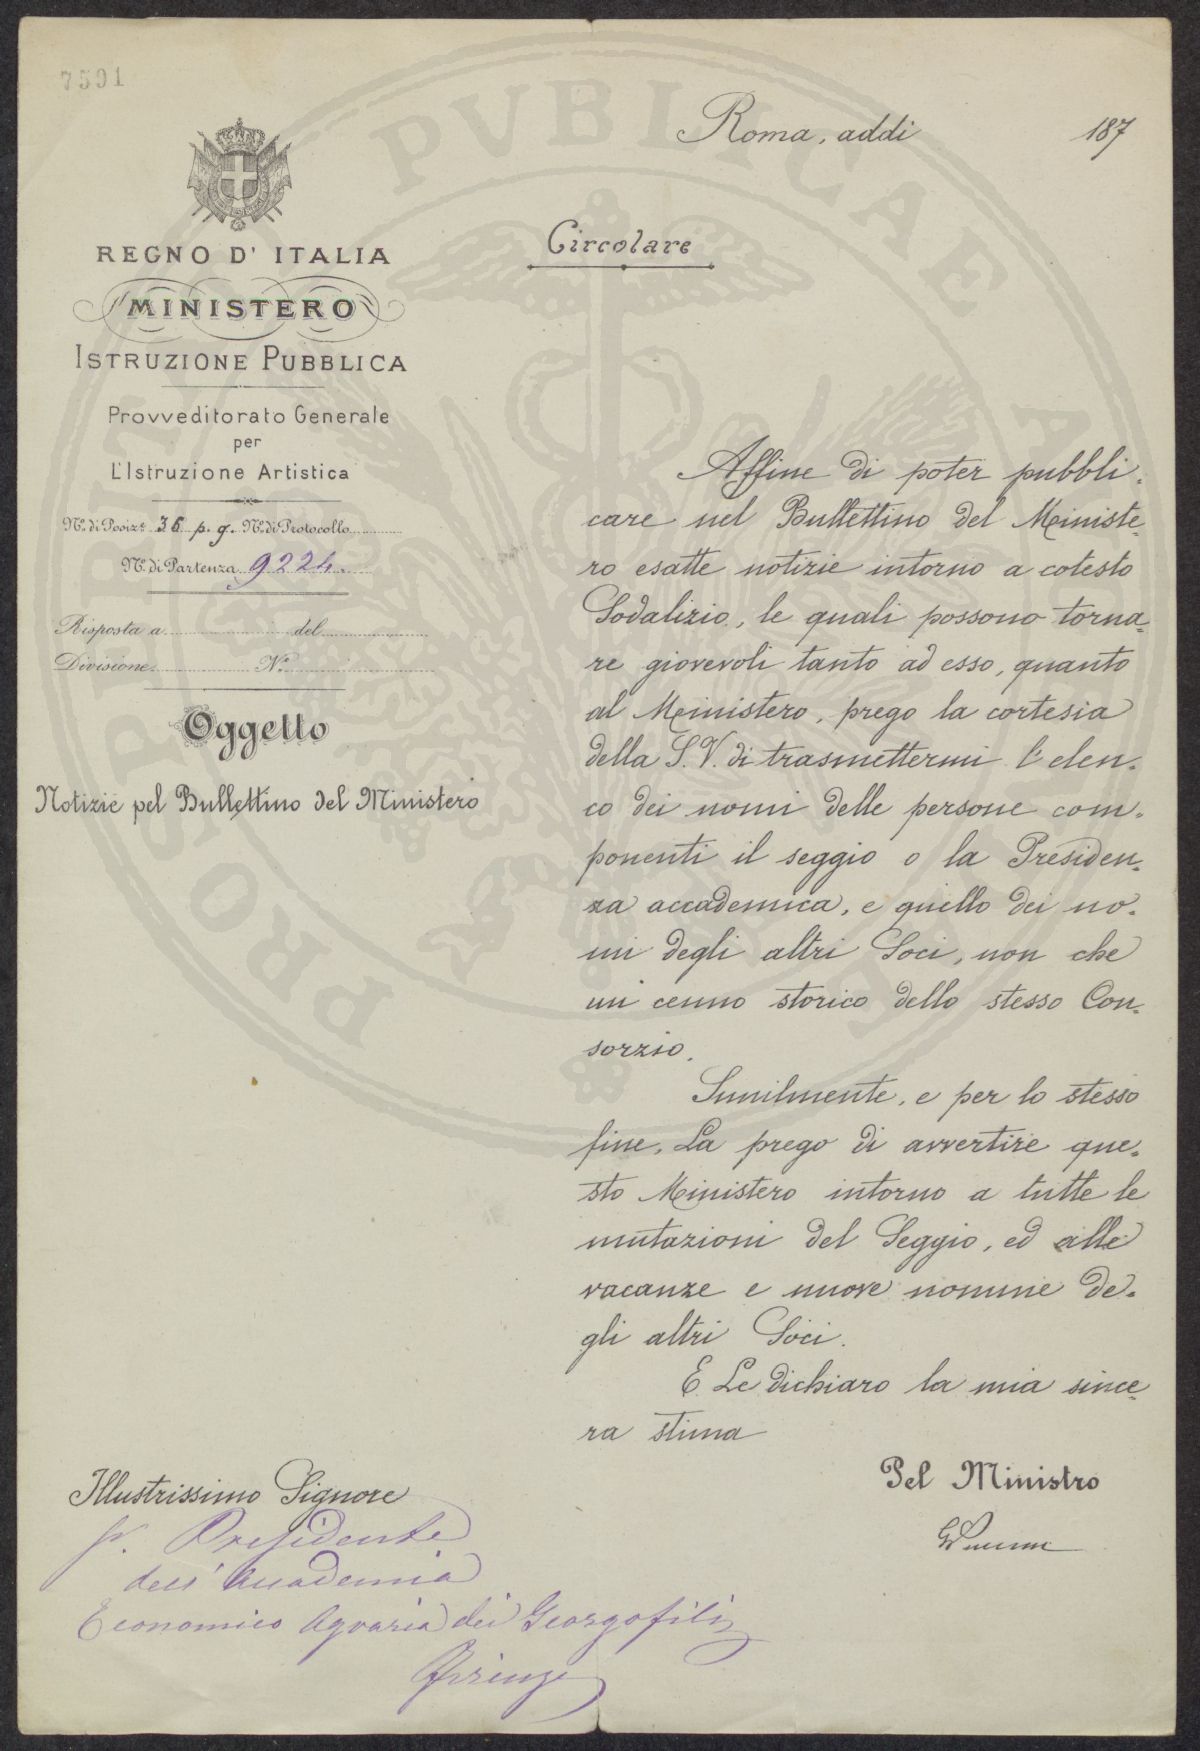 7591
REGNO D' ITALIA
MINISTERO
ISTRUZIONE PUBBLICA
Provveditorato Generale
per
L'Istruzione Artistica
N.º di Posiz.e 36 p. g. N.º di Protocollo
N.º di Partenza 9224.
Risposta a del
Divisione N.º
Oggetto
Notizie pel Bullettino del Ministero
Roma, addi 187
Circolare
Affine di poter pubbli-
care nel Bullettino del Ministe-
ro esatte notizie intorno a cotesto
Sodalizio, le quali possono torna-
re giovevoli tanto ad esso, quanto
al Ministero, prego la cortesia
della S.V. di trasmettermi l'elen-
co dei nomi delle persone com-
ponenti il seggio o la Presiden-
za accademica, e quello dei no-
mi degli altri Soci, non che
un cenno storico dello stesso Con-
sorzio.
Similmente, e per lo stesso
fine, La prego di avvertire que-
sto Ministero intorno a tutte le
mutazioni del Seggio, ed alle
vacanze e nuove nomine de-
gli altri Soci.
E Le dichiaro la mia since-
ra stima
Pel Ministro
Illustrissimo Signore
Presidente
dell'Accademia
Economico Agraria dei Georgofili
Firenze